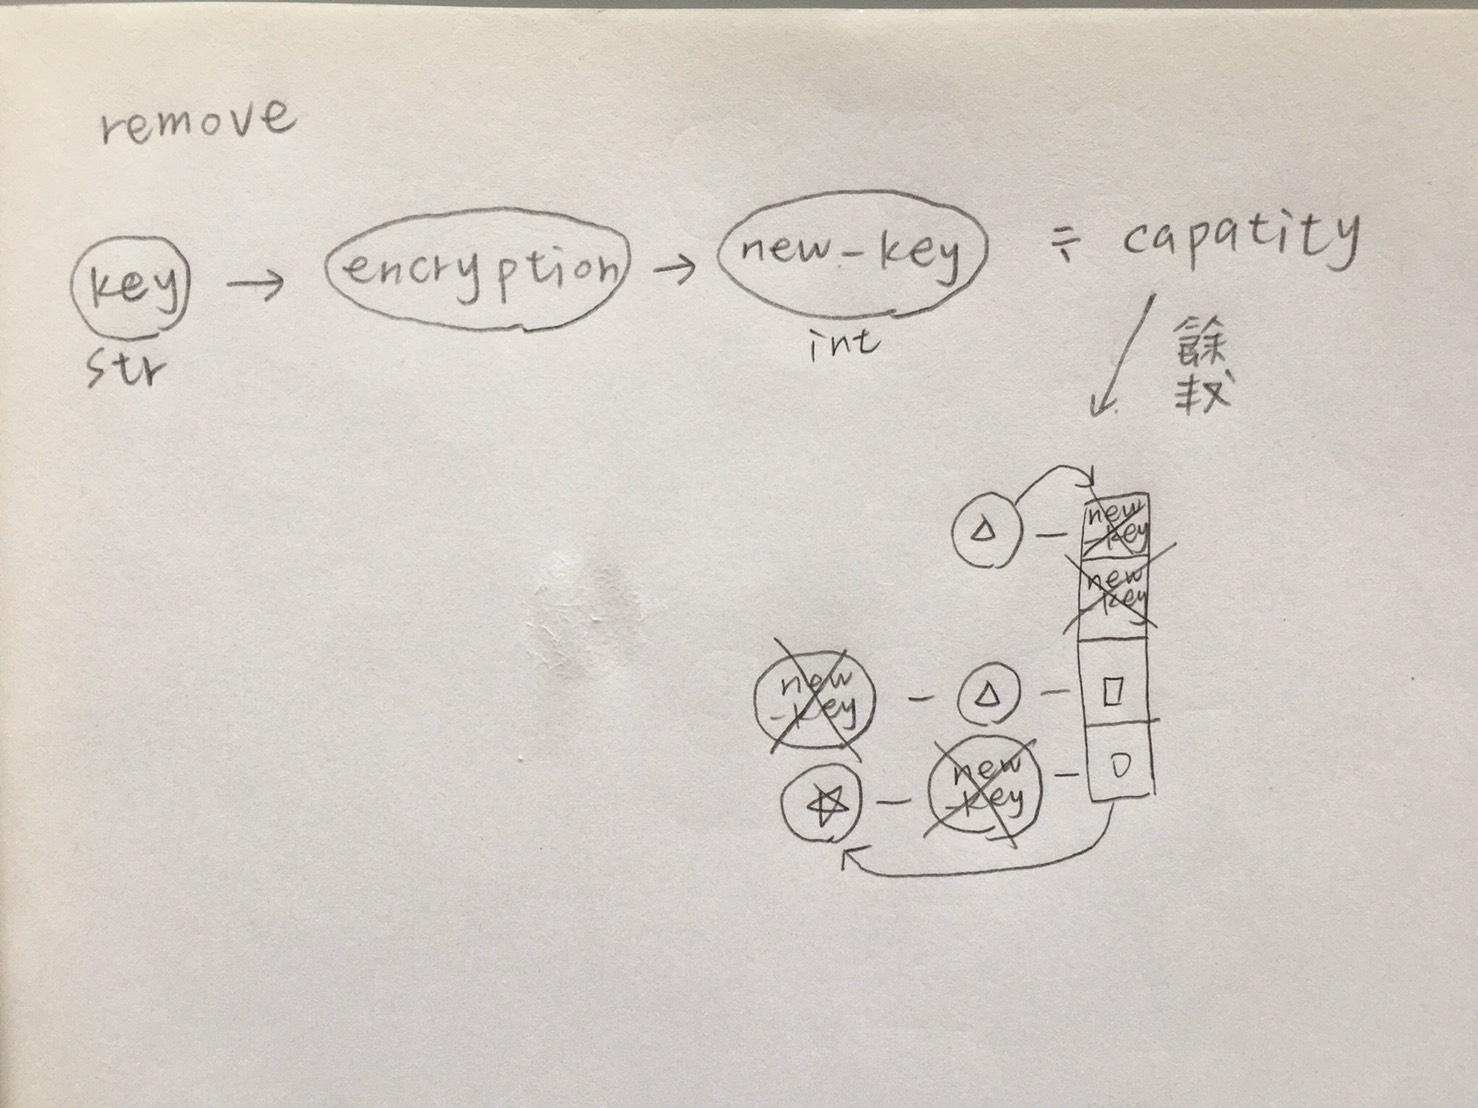 remove
key → encryption → new-key ÷ capatity
str
int
餘
数
new
-key
new
-key
new
-key
new
-key